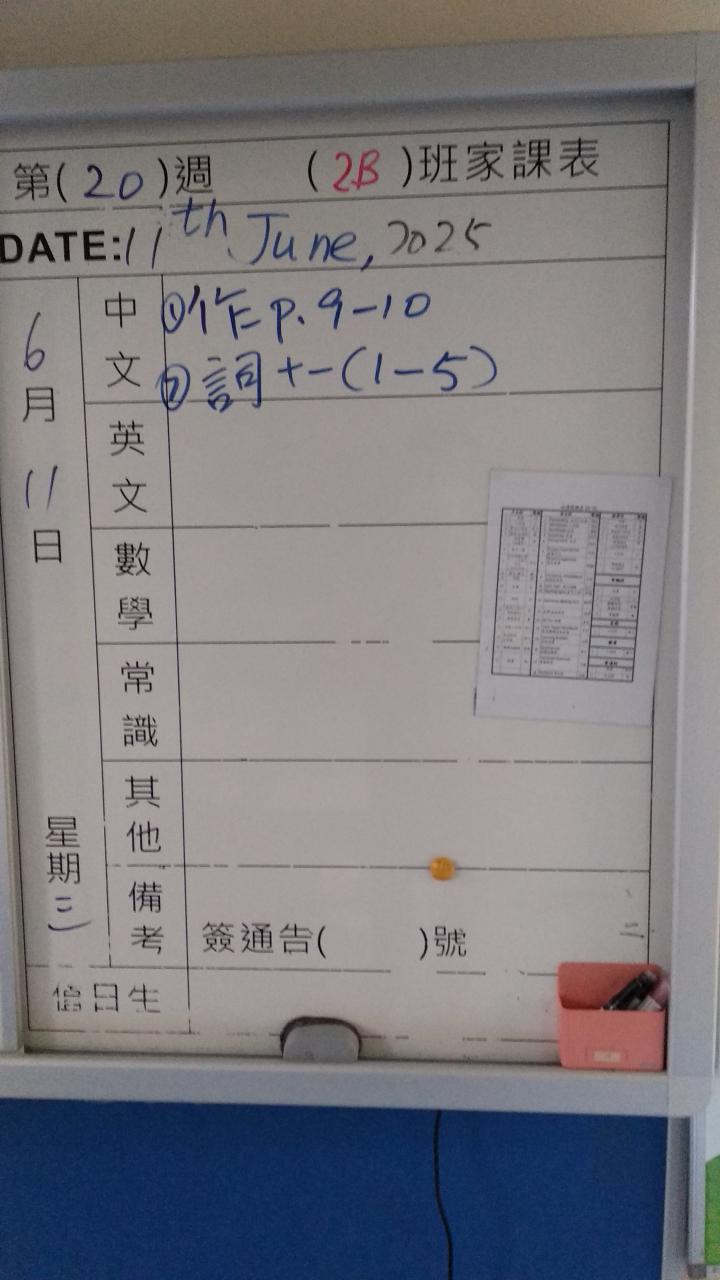 第(20)週 (2B)班家課表
DATE: 11th June, 2025
6月11日
星期三
中文
①作 p.9-10
②詞十一(1-5)
英文
數學
常識
其他
備考
簽通告( )號
值日生